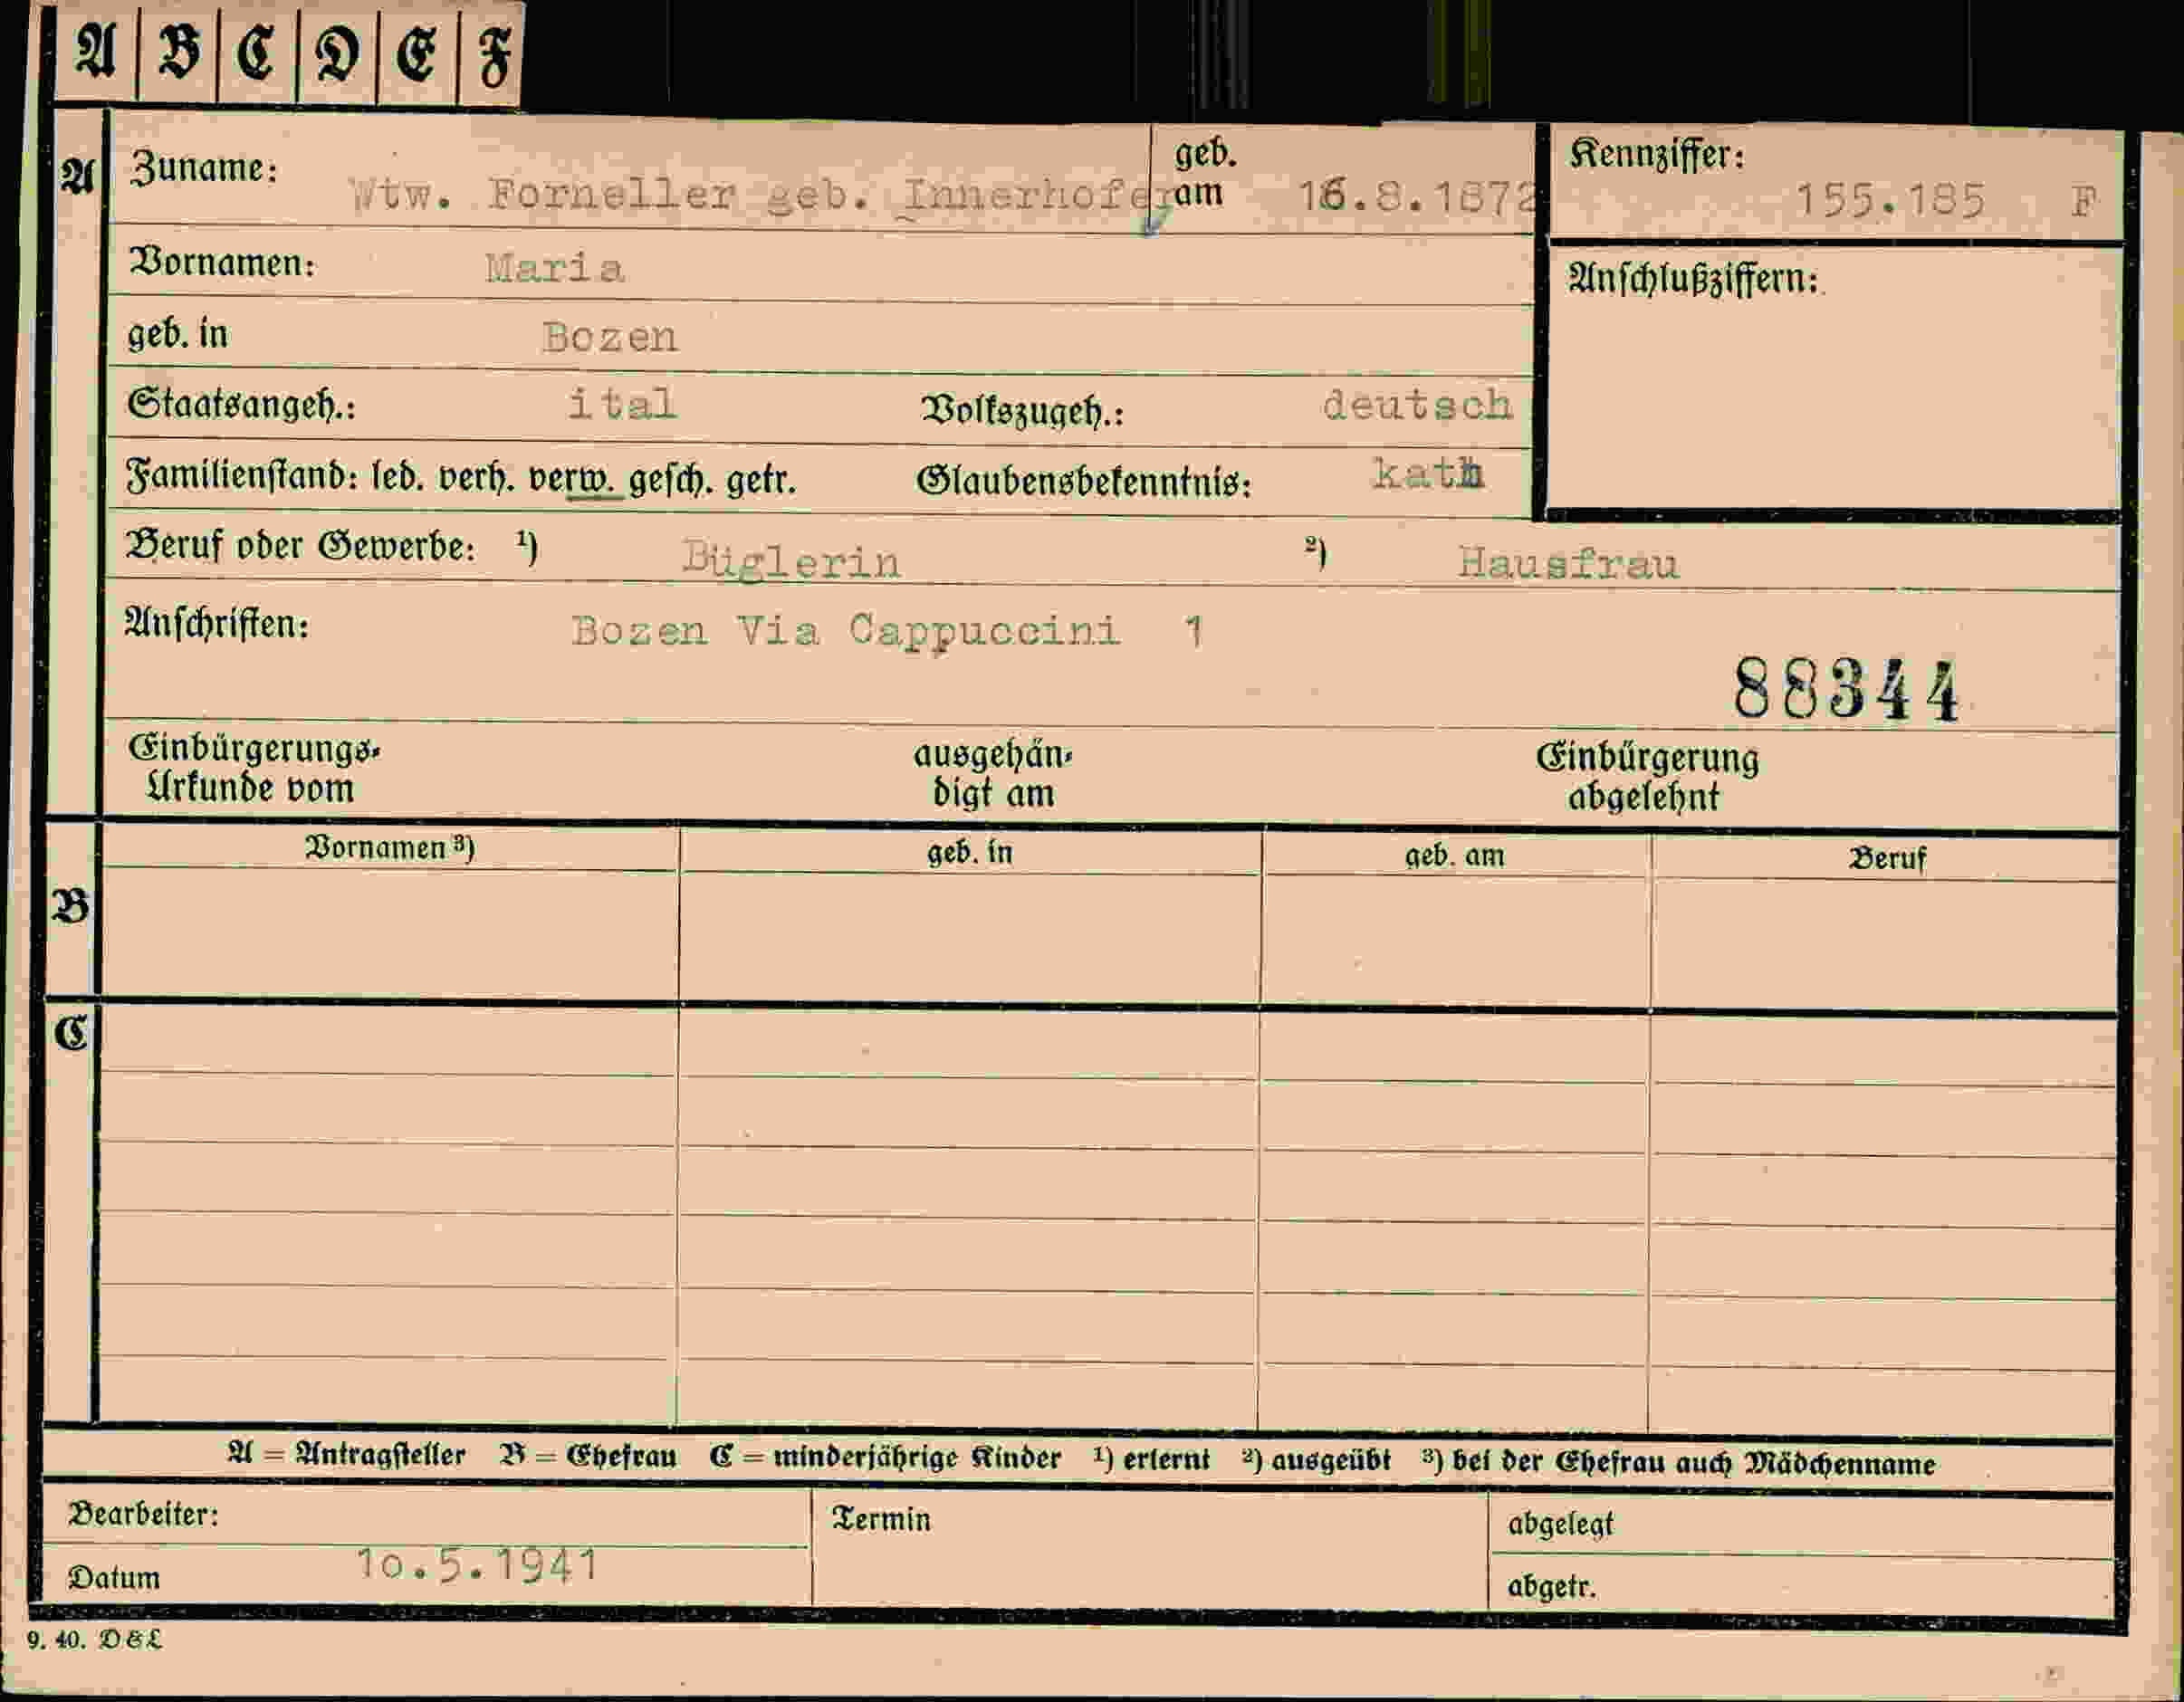 A B C D E F
A Zuname: Wtw. Forneller geb. Innerhofer geb. am 16.8.1872 Kennziffer: 155.185 F
Vornamen: Maria Anschlußziffern:
geb. in Bozen
Staatsangeh.: ital Volkszugeh.: deutsch
Familienstand: led. verh. verw. gesch. getr. Glaubensbekenntnis: kath
Beruf oder Gewerbe: ¹) Büglerin ²) Hausfrau
Anschriften: Bozen Via Cappuccini 1
88344
Einbürgerungs-Urkunde vom ausgehändigt am Einbürgerung abgelehnt
Vornamen ³) geb. in geb. am Beruf
B
C
A = Antragsteller B = Ehefrau C = minderjährige Kinder ¹) erlernt ²) ausgeübt ³) bei der Ehefrau auch Mädchenname
Bearbeiter: Termin abgelegt
Datum 10.5.1941 abgetr.
9. 40. D & L